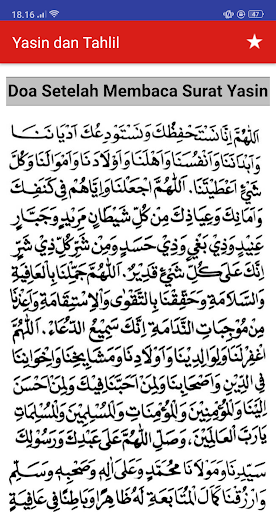 18.16
47
Yasin dan Tahlil
Doa Setelah Membaca Surat Yasin
اَللّٰهُمَّ اِنَّا نَسْتَحْفِظُكَ وَنَسْتَوْدِعُكَ اَدْيَانَنَا
وَاَبْدَانَنَا وَاَنْفُسَنَا وَاَهْلَنَا وَاَوْلَادَنَا وَاَمْوَالَنَا وَكُلَّ
شَيْءٍ اَعْطَيْتَنَا. اَللّٰهُمَّ اجْعَلْنَا وَاِيَّاهُمْ فِي كَنَفِكَ
وَاَمَانِكَ وَعِيَاذِكَ مِنْ كُلِّ شَيْطَانٍ مَرِيْدٍ وَجَبَّارٍ
عَنِيْدٍ وَذِيْ بَغْيٍ وَذِيْ حَسَدٍ وَمِنْ شَرِّ كُلِّ ذِيْ شَرٍّ
اِنَّكَ عَلَى كُلِّ شَيْءٍ قَدِيْرٌ. اَللّٰهُمَّ جَمِّلْنَا بِالْعَافِيَةِ
وَالسَّلَامَةِ وَحَقِّقْنَا بِالتَّقْوَى وَالْاِسْتِقَامَةِ وَاَعِذْنَا
مِنْ مُوْجِبَاتِ النَّدَامَةِ اِنَّكَ سَمِيْعُ الدُّعَاءِ. اَللّٰهُمَّ
اغْفِرْ لَنَا وَلِوَالِدِيْنَا وَاَوْلَادِنَا وَمَشَايِخِنَا وَاِخْوَانِنَا
فِي الدِّيْنِ وَاَصْحَابِنَا وَلِمَنْ اَحَبَّنَا فِيْكَ وَلِمَنْ اَحْسَنَ
اِلَيْنَا وَلِلْمُؤْمِنِيْنَ وَالْمُؤْمِنَاتِ وَالْمُسْلِمِيْنَ وَالْمُسْلِمَاتِ
يَارَبَّ الْعَالَمِيْنَ، وَصَلِّ اللّٰهُمَّ عَلَى عَبْدِكَ وَرَسُوْلِكَ
سَيِّدِنَا وَمَوْلَانَا مُحَمَّدٍ وَعَلَى اٰلِهِ وَصَحْبِهِ وَسَلِّمْ
وَارْزُقْنَا كَمَالَ الْمُتَابَعَةِ لَهُ ظَاهِرًا وَبَاطِنًا فِي عَافِيَةٍ